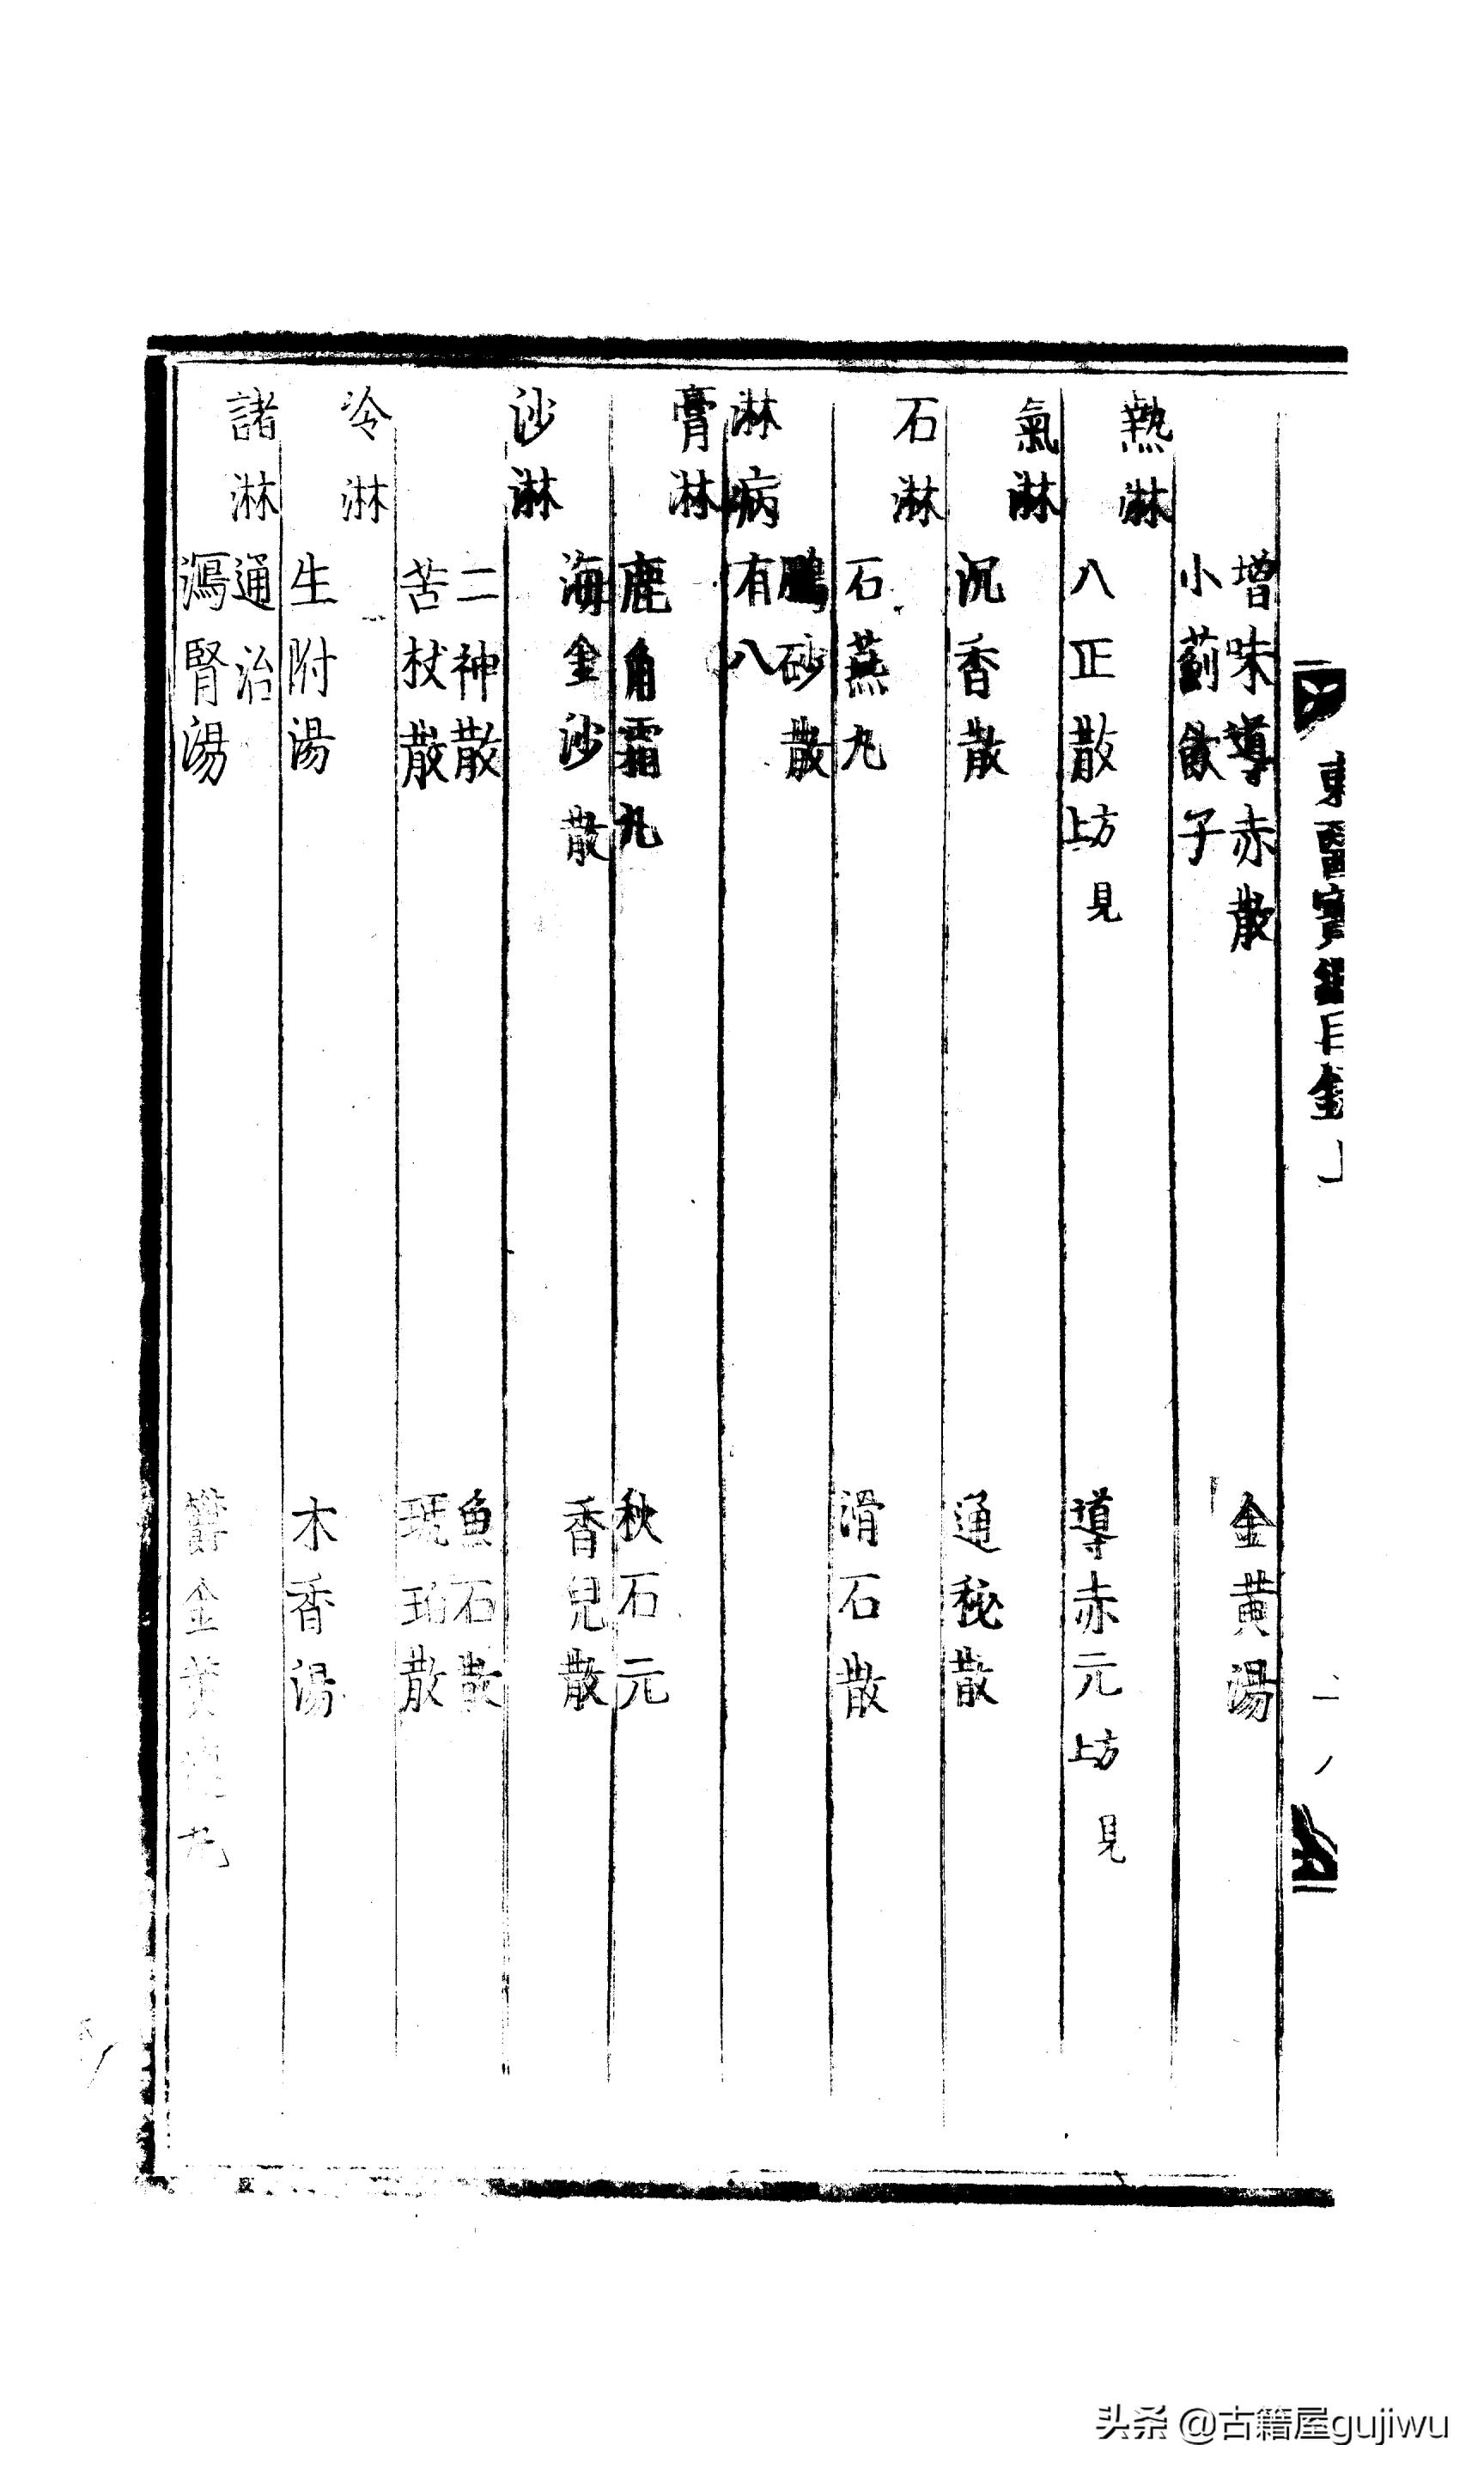 增味導赤散　金黃湯
小薊飲子
熱淋
八正散 見上方　導赤元 見上方
氣淋
沉香散　通秘散
石淋
石燕丸　滑石散
鵬砂散
淋病有八
膏淋
鹿角霜丸　秋石元
海金沙散　香兒散
沙淋
二神散　魚石散
苦杖散　琥珀散
冷淋
生附湯　木香湯
諸淋通治
瀉腎湯　欝金黃連丸
東醫寶鑑目錄上
头条 @古籍屋gujiwu